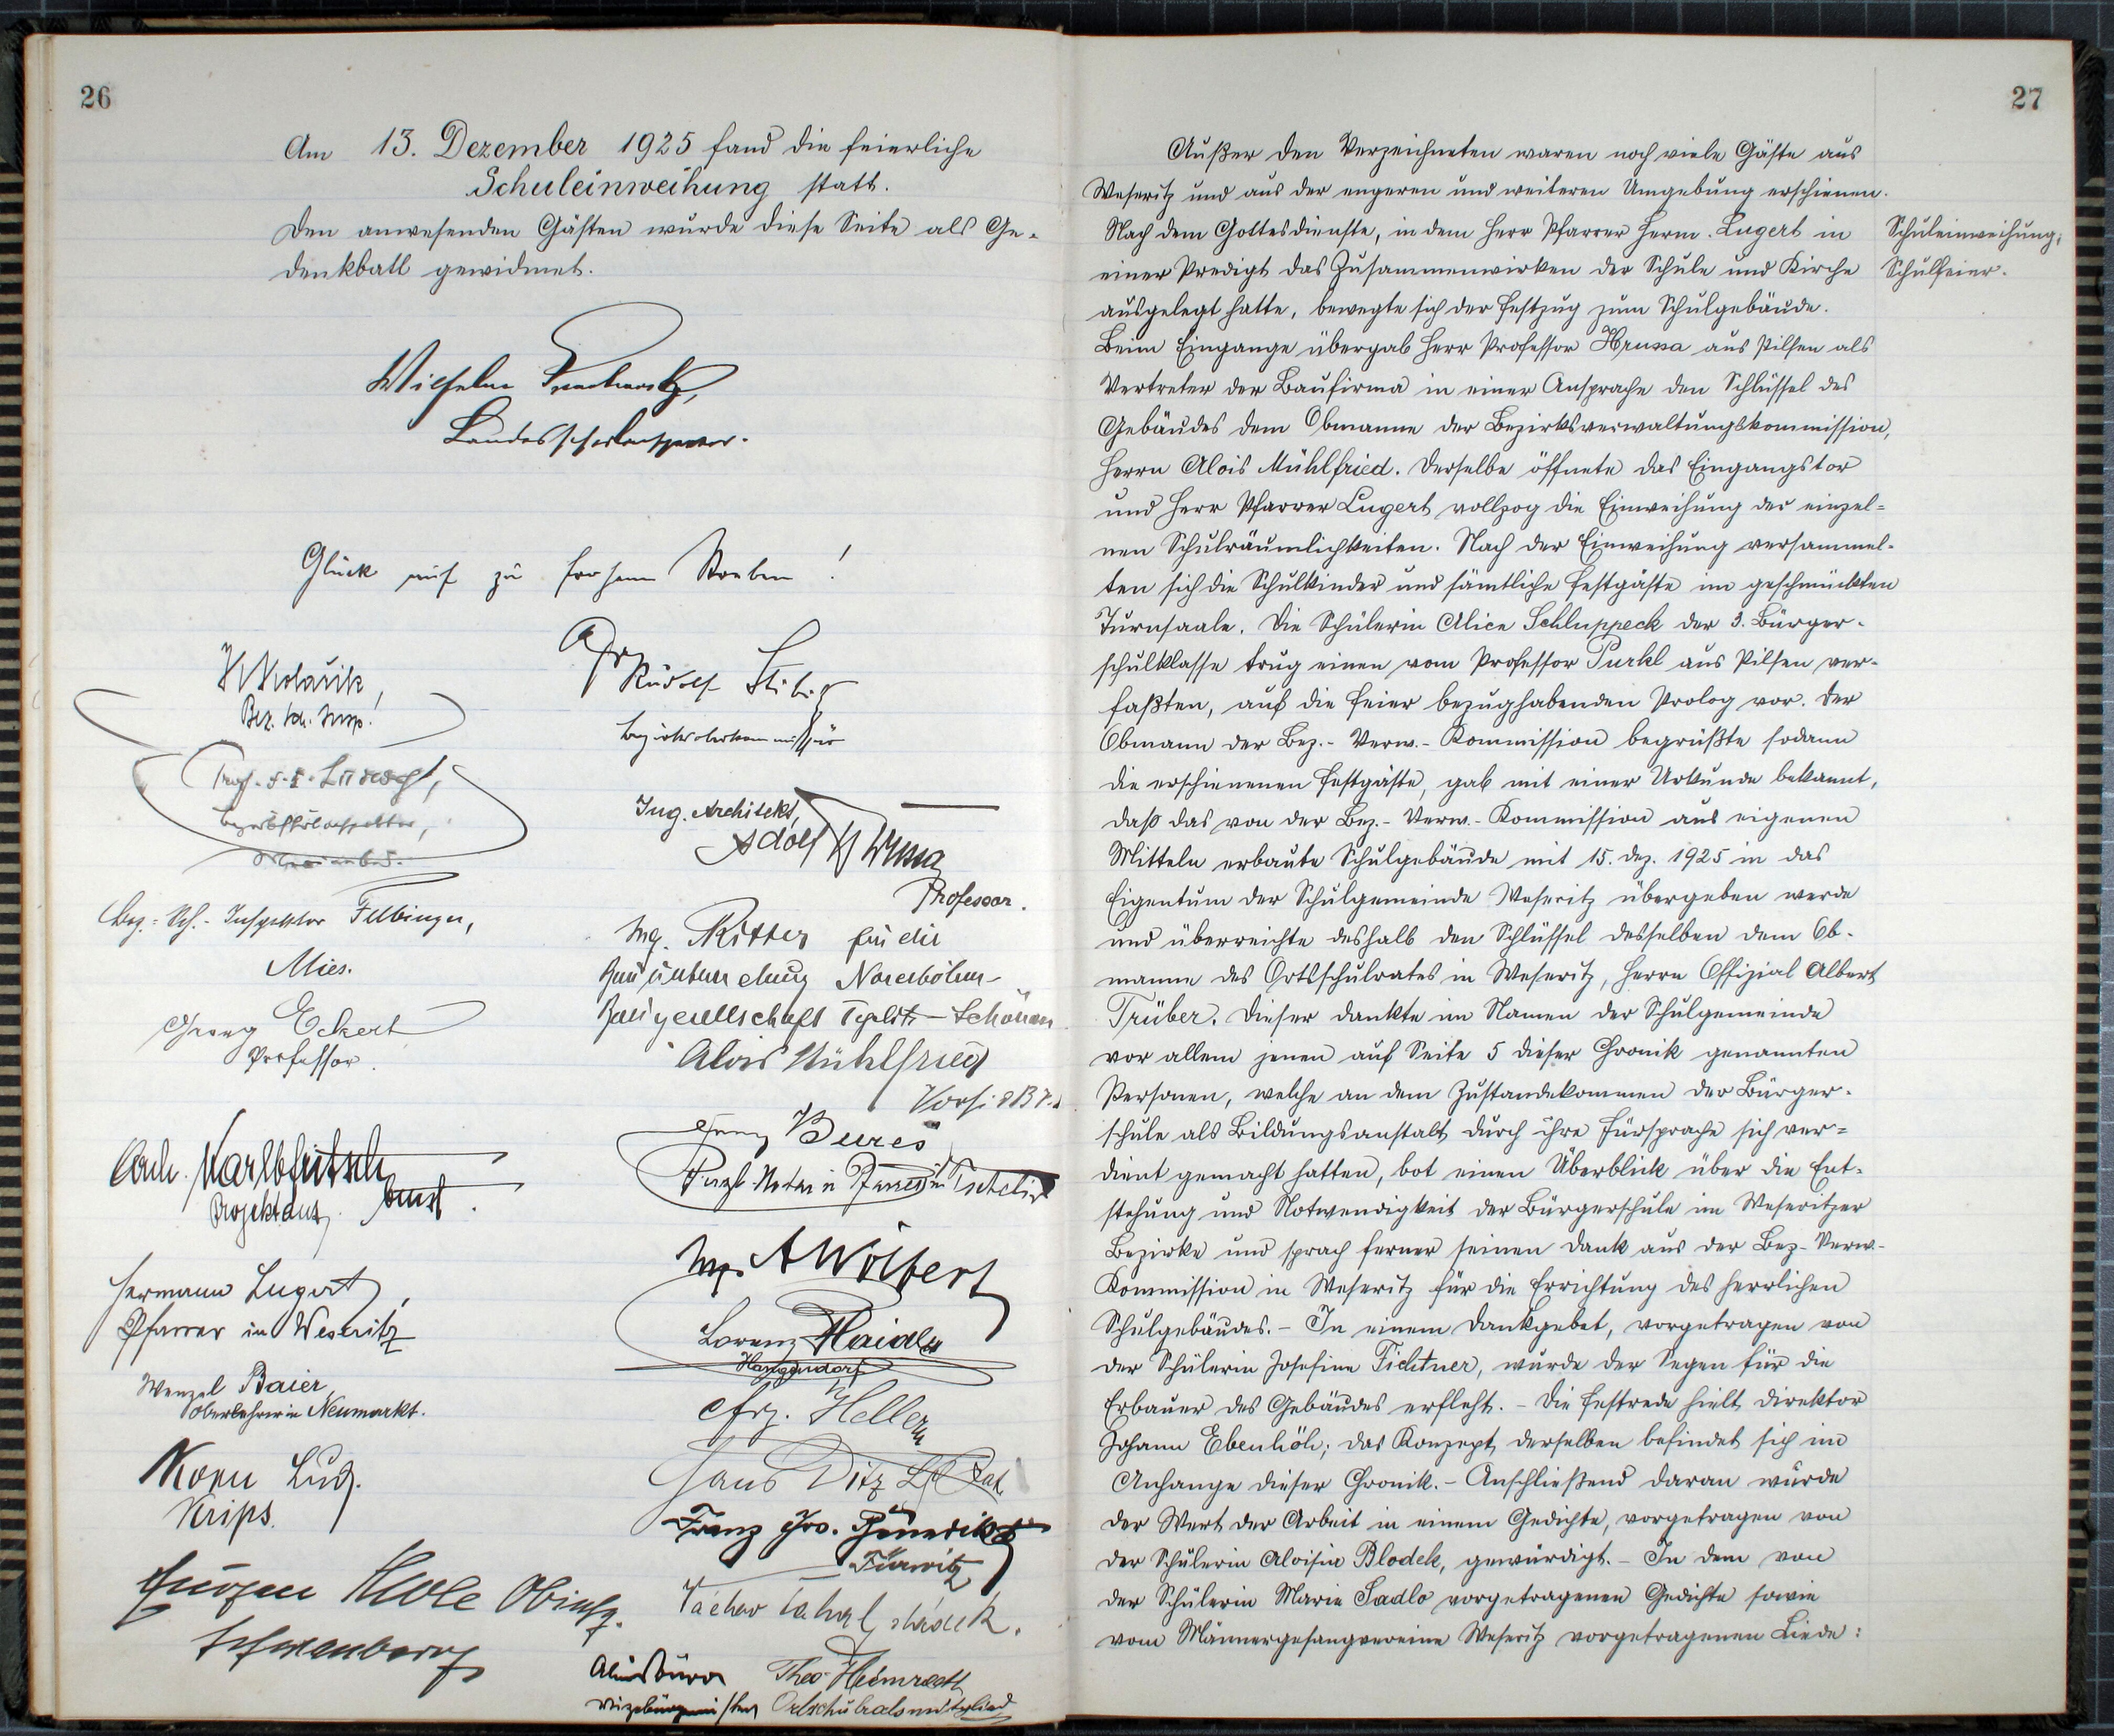 26
Am 13. Dezember 1925 fand die feierliche
Schuleinweihung statt.
Den anwesenden Gästen wurde diese Seite als Ge-
denkbatt gewidmet.
Wilhelm
Landesschulinspektor.
Glück auf zu frohem Streben!
Bez. Sch. Insp.
Prof.
Bezirksschulinspektor,
Bez.-Sch.-Inspektor Felbinger,
Mies.
Georg Eckert
Professor.
Projektant
Hermann Lugert,
Pfarrer in Weseritz
Wenzel Baier
Oberlehrer in Neumarkt.
Korn Lud.
Krips.
Rudolf
Bezirksoberkommissär
Ing. Architekt,
Adolf Hrussa
Professor.
Ing. Ritter für die
Bauunternehmung Nordböhm-
Baugesellschaft Teplitz-Schönau
Alois Mühlfried
Bureš
Ing. A Wolfert
Lorenz Haidl
Hangendorf
Frz. Heller
Hans Ditz
Franz Jos. Benedikt
Theo Heimrath
Vizebürgermeister Ortschulratsmitglied
27
Außer den Verzeichneten waren noch viele Gäste aus
Weseritz und aus der engeren und weiteren Umgebung erschienen.
Nach dem Gottesdienste, in dem Herr Pfarrer Herm. Lugert in
einer Predigt das Zusammenwirken der Schule und Kirche
ausgelegt hatte, bewegte sich der Festzug zum Schulgebäude.
Schuleinweihung;
Schulfeier.
Beim Eingange übergab Herr Professor Hrussa aus Pilsen als
Vertreter der Baufirma in einer Ansprache den Schlüssel des
Gebäudes dem Obmanne der Bezirksverwaltungskommission,
Herrn Alois Mühlfried. Derselbe öffnete das Eingangstor
und Herr Pfarrer Lugert vollzog die Einweihung der einzel-
nen Schulräumlichkeiten. Nach der Einweihung versammel-
ten sich die Schulkinder und sämtliche Festgäste im geschmückten
Turnsaale. Die Schülerin Alice Schluppeck der 3. Bürger-
schulklasse trug einen vom Professor Purkl aus Pilsen ver-
faßten, auf die Feier bezughabenden Prolog vor. Der
Obmann der Bez.-Verw.-Kommission begrüßte sodann
die erschienenen Festgäste, gab mit einer Urkunde bekannt,
daß das von der Bez.-Verw.-Kommission aus eigenen
Mitteln erbaute Schulgebäude mit 15. Dez. 1925 in das
Eigentum der Schulgemeinde Weseritz übergeben werde
und überreichte deshalb den Schlüssel desselben dem Ob-
manne des Ortsschulrates in Weseritz, Herrn Offizial Albert
Trüber. Dieser dankte im Namen der Schulgemeinde
vor allem jenen auf Seite 5 dieser Chronik genannten
Personen, welche an dem Zustandekommen der Bürger-
schule als Bildungsanstalt durch ihre Fürsprache sich ver-
dient gemacht hatten, bot einen Überblick über die Ent-
stehung und Notwendigkeit der Bürgerschule im Weseritzer
Bezirke und sprach ferner seinen Dank aus der Bez-Verw-
Kommission in Weseritz für die Errichtung des herrlichen
Schulgebäudes. - In einem Dankgebet, vorgetragen von
der Schülerin Josefine Fichtner, wurde der Segen für die
Erbauer des Gebäudes erfleht. - Die Festrede hielt Direktor
Johann Ebenhöh; das Konzept derselben befindet sich im
Anhange dieser Chronik. - Anschließend daran wurde
der Wert der Arbeit in einem Gedichte, vorgetragen von
der Schülerin Aloisia Blodek, gewürdigt. - In dem von
der Schülerin Marie Sadlo vorgetragenen Gedichte sowie
vom Männergesangvereine Weseritz vorgetragenen Liede: